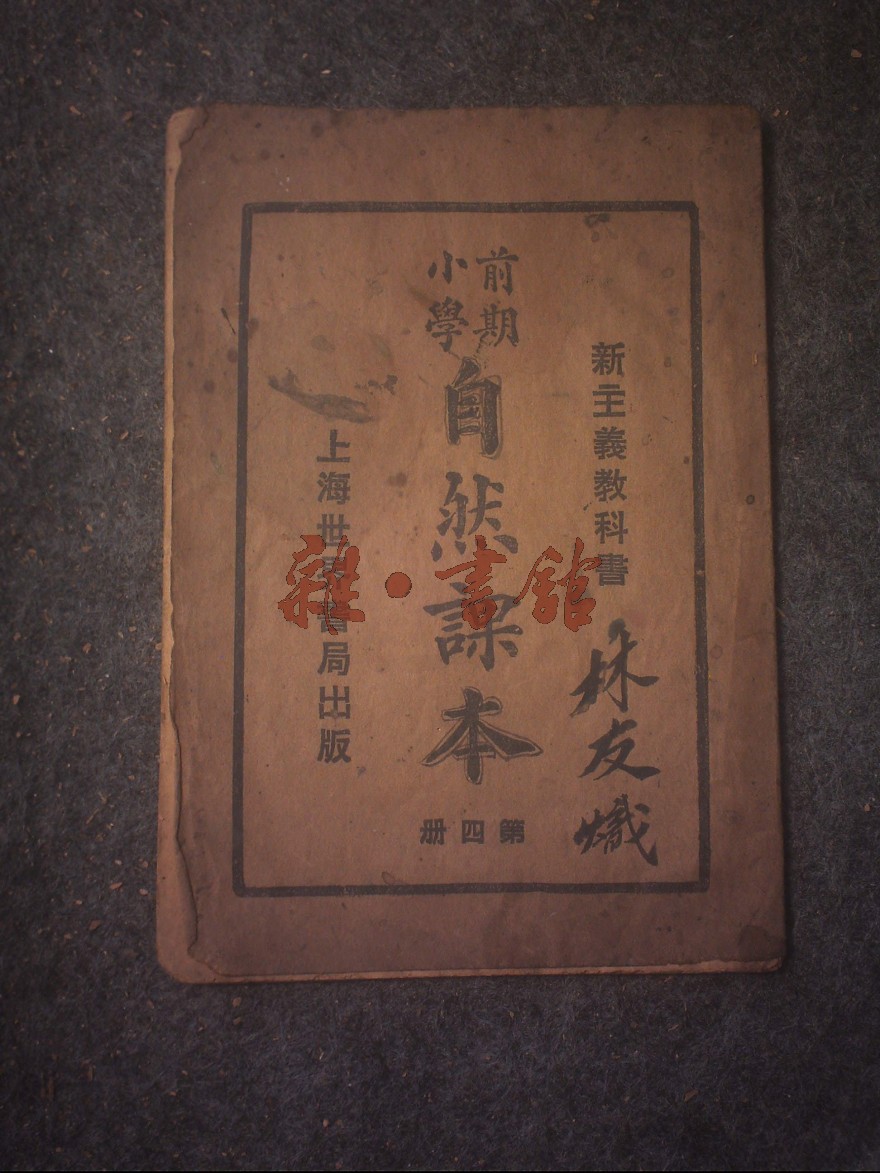 新主義教科書
林友熾
前期
小學
自然課本
第四册
上海世界書局出版
雜·書館